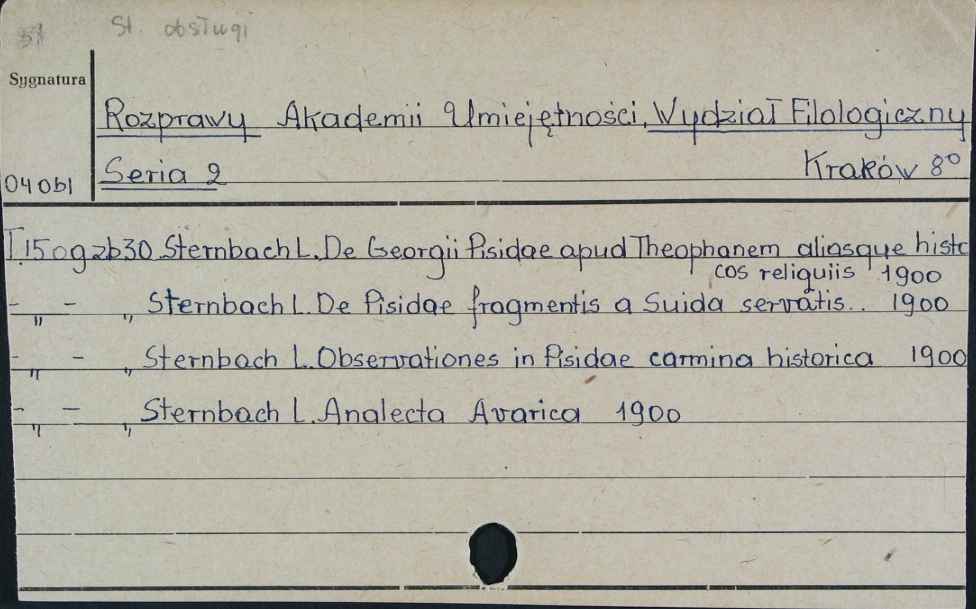 St. obsługi
Sygnatura
Rozprawy Akademii Umiejętności. Wydział Filologiczny
04 obl Seria 2 Kraków 8°
T.15 og zb 30 Sternbach L. De Georgii Pisidae apud Theophanem aliosque histo
cos reliquiis 1900
- „ - „ Sternbach L. De Pisidae fragmentis a Suida servatis.. 1900
- „ - „ Sternbach L. Observationes in Pisidae carmina historica 1900
- „ - „ Sternbach L. Analecta Avarica 1900